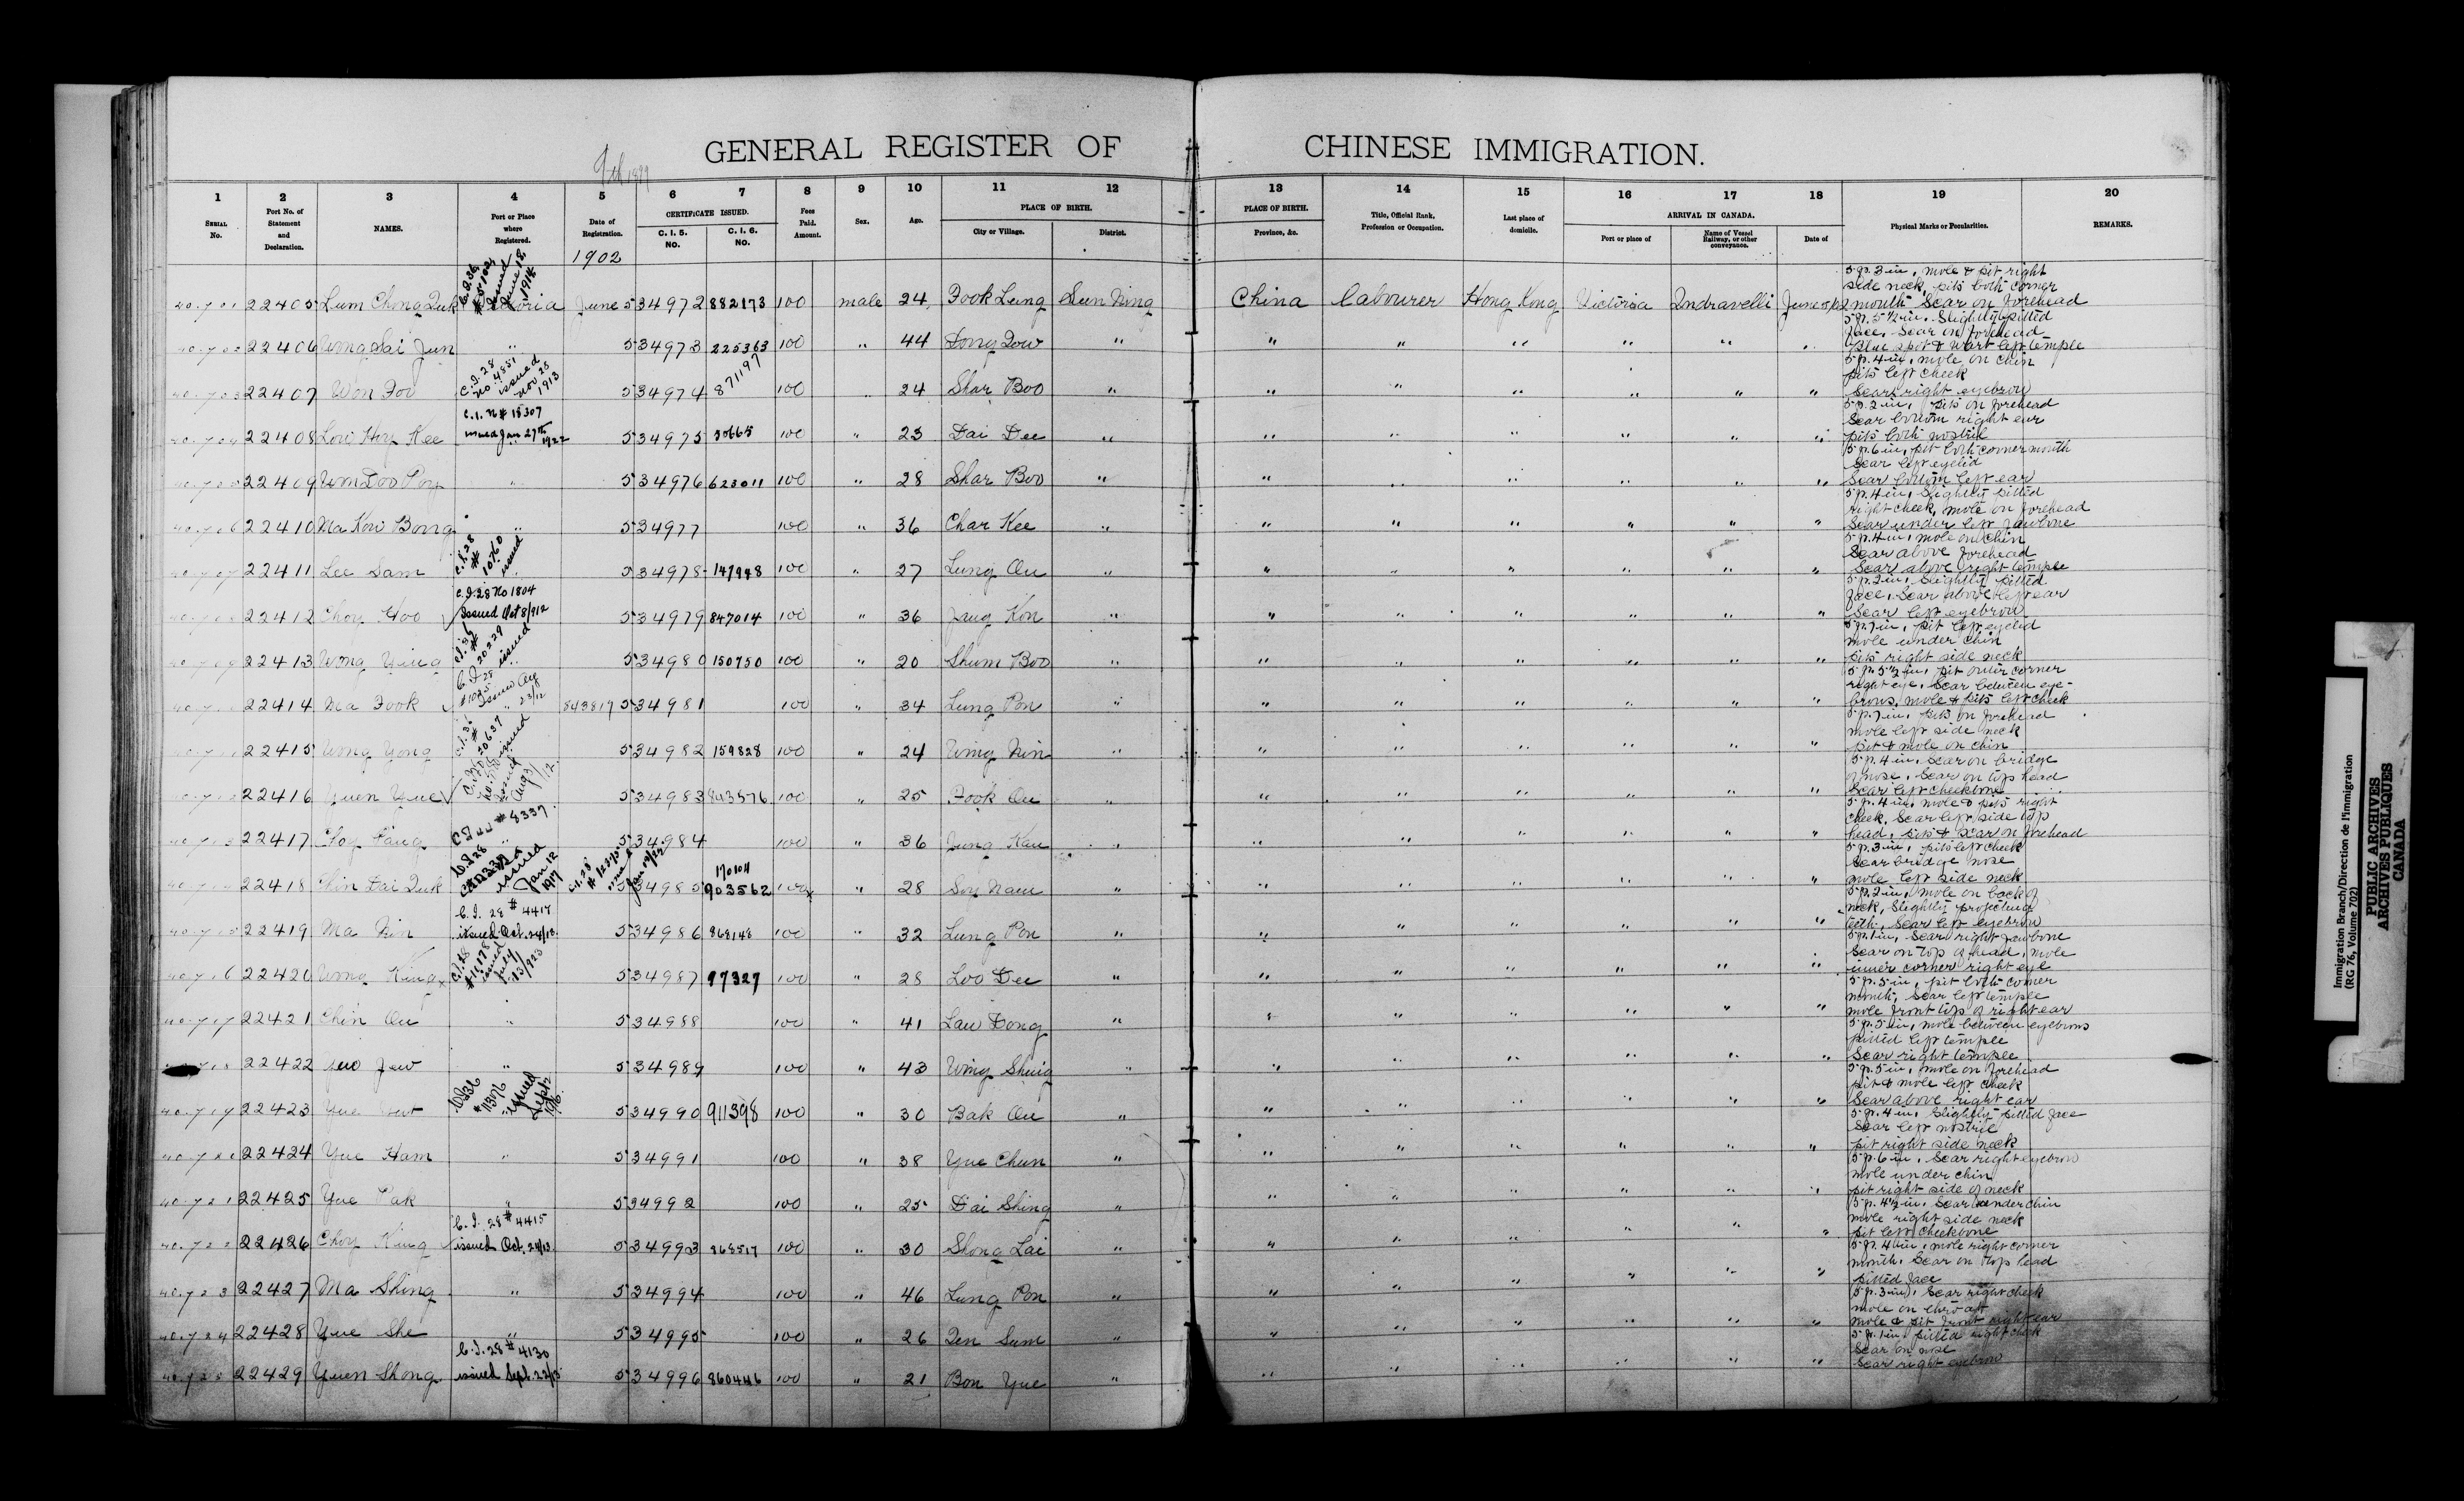 9th 1899
GENERAL REGISTER OF CHINESE IMMIGRATION.
1 2 3 4 5 6 7 8 9 10 11 12 13 14 15 16 17 18 19 20
SERIAL No. Port No. of Statement and Declaration. NAMES. Port or Place where Registered. Date of Registration. CERTIFICATE ISSUED. C. I. 5. NO. C. I. 6. NO. Fees Paid. Amount. Sex. Age. PLACE OF BIRTH. City or Village. District. PLACE OF BIRTH. Province, &c. Title, Official Rank, Profession or Occupation. Last place of domicile. ARRIVAL IN CANADA. Port or place of Name of Vessel Railway, or other conveyance. Date of Physical Marks or Peculiarities. REMARKS.
1902
40701 22405 Lum Chong Duk June 5 34972 882173 100 male 24 Fook Lung Sun Ning China labourer Hong Kong Victoria Indravelli 5 ft. 3 in, mole & pit right side neck, pits both corner mouth Scar on forehead
40702 22406 Wong Sai Jun " 5 34973 225363 100 " 44 Dong Dow " " " " " " " 5 ft. 5 1/2 in. Slightly pitted face. Scar on forehead Blue spot & wart left temple
40703 22407 Won Foo C.I. 28 no 4851 issued nov 28 1913 5 34974 871197 100 " 24 Shar Boo " " " " " " " 5 ft. 4 in, mole on chin pits left cheek Scar right eyebrow
40704 22408 Low Hoy Kee issued Jan 27th 1922 5 34975 30665 100 " 23 Dai Dee " " " " " " " 5 ft. 2 in, pits on forehead Scar bottom right ear pits both nostril
40705 22409 Wm Doo Poy " 5 34976 623011 100 " 28 Shar Boo " " " " " " " 5 ft. 6 in, pit both corner mouth Scar left eyelid Scar bottom left ear
40706 22410 Ma Kow Bong " 5 34977 100 " 36 Char Kee " " " " " " " 5 ft. 4 in, Slightly pitted right cheek, mole on forehead Scar under left jawbone
40707 22411 Lee Sam C.I. 28 # 10760 issued 5 34978 147948 100 " 27 Lung On " " " " " " " 5 ft. 4 in, mole on chin Scar above forehead Scar above right temple
40708 22412 Choy Hoo C.I. 28 No 1804 Issued Oct 8/912 5 34979 847014 100 " 36 Jang Kon " " " " " " " 5 ft. 2 in, Slightly pitted face, Scar above left ear Scar left eyebrow
40709 22413 Wong Ying 20229 issued 5 34980 150750 100 " 20 Shum Boo " " " " " " " 5 ft. 7 in, pit left eyelid mole under chin pits right side neck
22414 Ma Fook 843817 5 34981 100 " 34 Lung Pon " " " " " " " 5 ft. 5 1/2 in, pit outer corner right eye, Scar between eyebrows, mole & pits left cheek
22415 Wong Yong 20637 issued 5 34982 159828 100 " 24 Wing Nin " " " " " " " 5 ft. 7 in, pits on forehead mole left side neck pit & mole on chin
22416 Yuen Yue issued Aug 3/12 5 34983 843576 100 " 25 Fook On " " " " " " " 5 ft. 4 in, Scar on bridge of nose, Scar on top head Scar left cheekbone
22417 Choy Fang # 8337 5 34984 100 " 36 Jung Kau " " " " " " " 5 ft. 4 in, mole & pits right cheek, Scar left side top head, pits & scar on forehead
22418 Chin Dai Duk issued Jan 12 1917 5 34985 170104 903562 100 " 28 Soy Nam " " " " " " " 5 ft. 3 in, pits left cheek Scar bridge nose mole left side neck
22419 Ma Nin C.I. 28 # 4417 issued Oct. 24/13 5 34986 868148 100 " 32 Lung Pon " " " " " " " 5 ft. 2 in, mole on back of neck, Slightly projecting teeth, Scar left eyebrow
40716 22420 Wong King issued July 13/923 5 34987 97327 100 " 28 Loo Dee " " " " " " " 5 ft. 1 in, Scar right jawbone Scar on top of head, mole inner corner right eye
40717 22421 Chin On " 5 34988 100 " 41 Law Dong " " " " " " " 5 ft. 5 in, pit both corner mouth, Scar left temple mole front top of right ear
22422 Jew " 5 34989 100 " 43 Wing Shing " " " " " " " 5 ft. 5 in, mole between eyebrows pitted left temple Scar right temple
40719 22423 Yue # 11376 issued Sept 5 34990 911398 100 " 30 Bak On " " " " " " " 5 ft. 5 in, mole on forehead pit & mole left cheek Scar above right ear
22424 Yue Ham " 5 34991 100 " 38 Yue Chun " " " " " " " 5 ft. 4 in, Slightly pitted face Scar left nostril pit right side neck
40721 22425 Yue Pak " 5 34992 100 " 25 Dai Shing " " " " " " " 5 ft. 6 in, Scar right eyebrow mole under chin pit right side of neck
40722 22426 Choy King C.I. 28 # 4415 issued Oct. 24/13 5 34993 868517 100 " 30 Shong Lai " " " " " " " 5 ft. 4 1/2 in, Scar under chin mole right side neck pit left cheekbone
40723 22427 Ma Shing " 5 34994 100 " 46 Lung Pon " " " " " " " 5 ft. 4 in, mole right corner mouth, Scar on top head pitted face
40724 22428 Yue She " 5 34995 100 " 26 Den Sum " " " " " " " 5 ft. 3 in, Scar right cheek mole on throat mole & pit front right ear
40725 22429 Yuen Shong C.I. 28 # 4130 issued Sept. 22/13 5 34996 860446 100 " 21 Bon Yue " " " " " " 5 ft. 1 in, pitted right cheek Scar on nose Scar right eyebrow
Immigration Branch/Direction de l'immigration
(RG 76, Volume 702)
PUBLIC ARCHIVES
ARCHIVES PUBLIQUES
CANADA